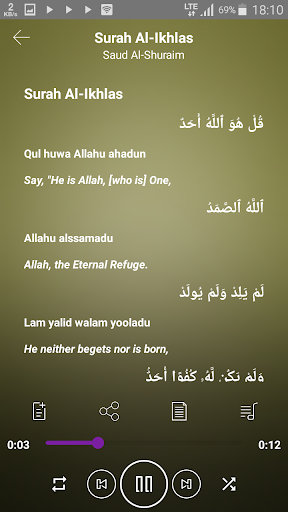 2
KB/s
LTE
69%
18:10
Surah Al-Ikhlas
Saud Al-Shuraim
Surah Al-Ikhlas
قُلْ هُوَ ٱللَّهُ أَحَدٌ
Qul huwa Allahu ahadun
Say, "He is Allah, [who is] One,
ٱللَّهُ ٱلصَّمَدُ
Allahu alssamadu
Allah, the Eternal Refuge.
لَمْ يَلِدْ وَلَمْ يُولَدْ
Lam yalid walam yooladu
He neither begets nor is born,
وَلَمْ يَكُن لَّهُۥ كُفُوًا أَحَدٌۢ
0:03
0:12